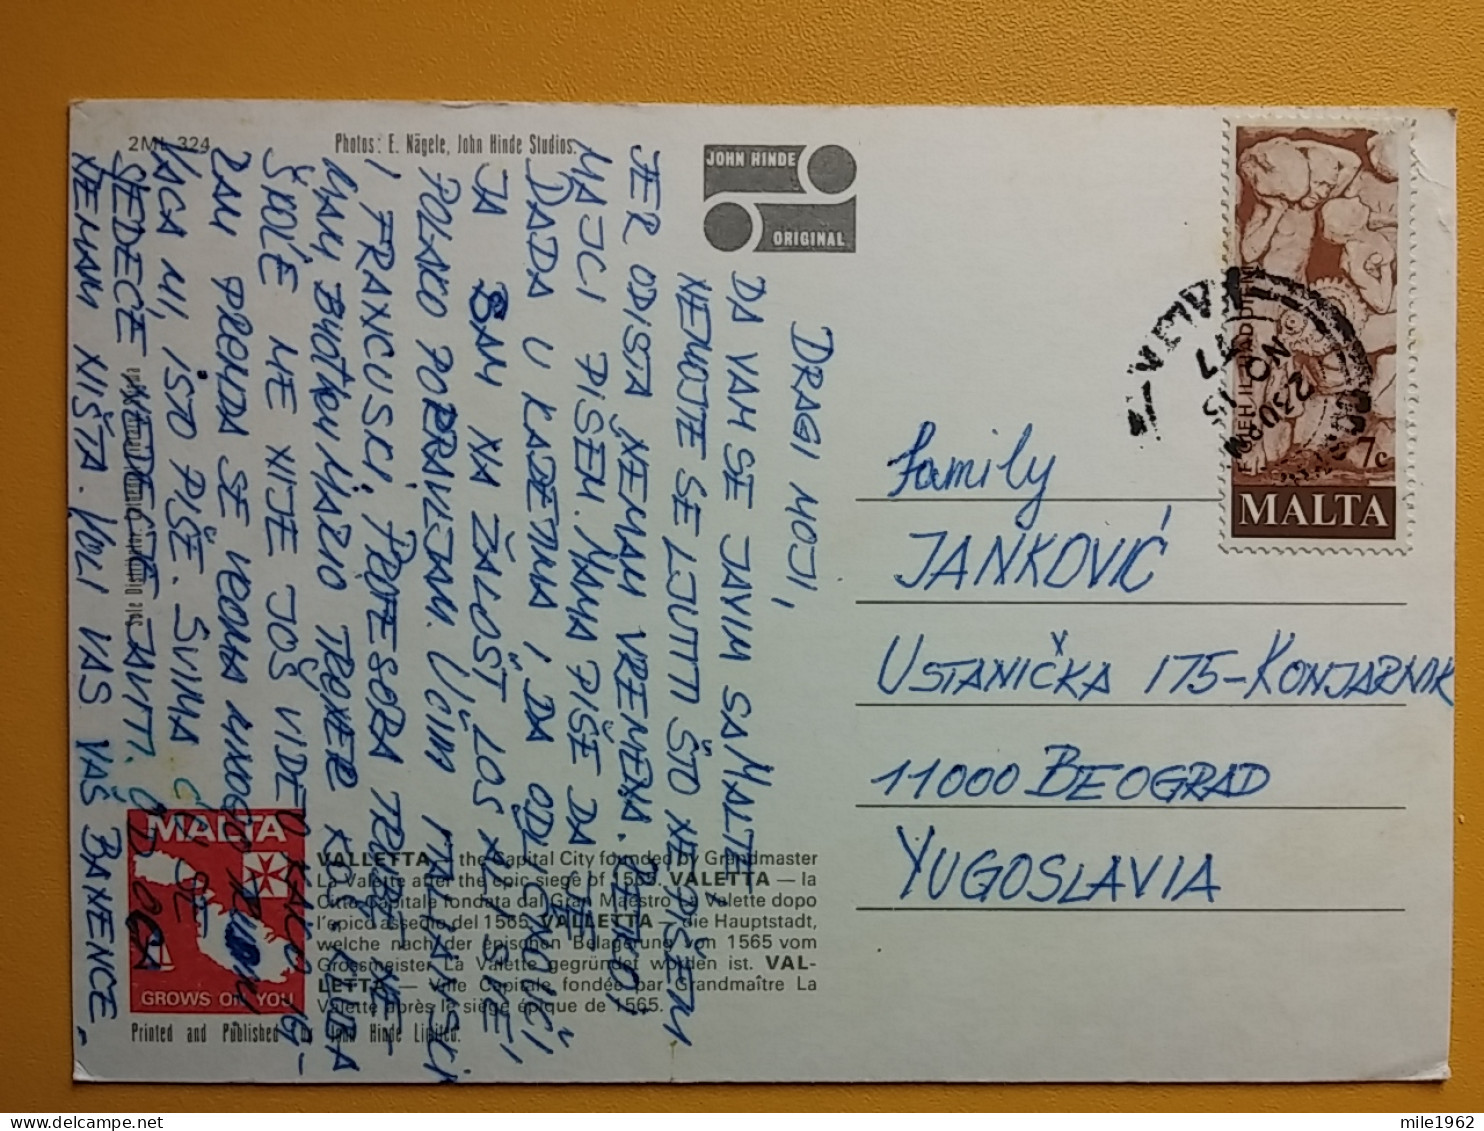 2ML 324
Photos: E. Nägele, John Hinde Studios.
JOHN HINDE
ORIGINAL
DRAGI MOJI,
DA VAM SE JAVIM SA MALTE
NEMOJTE SE LJUTITI ŠTO NE PIŠEM
JER ODISTA NEMAM VREMENA.
MAJCI PIŠEM. MAMA PIŠE DA JE
DADA U KADETIMA I DA ODLIČNO UČI
JA SAM NA ŽALOST LOŠ AL SVE
POLAKO POPRAVLJAM. UČIM ITALIJANSKI
I FRANCUSKI, PROFESORA TRENUT. NE-
MAM
ŠKOLE ME NIJE JOŠ VIDEO
DAM PREMDA SE VEOMA MNOGO
VACA MI, ISTO PIŠE. SVIMA ĆU SE
SEDEĆE NEDELJE JAVITI. OD
NEMAM NIŠTA. VOLI VAS VAŠ
family
JANKOVIĆ
USTANIČKA 175-KONJARNIK
11000 BEOGRAD
YUGOSLAVIA
VALLETTA
15
NO
77
7c
MALTA
MALTA
GROWS ON YOU
VALLETTA — the Capital City founded by Grandmaster
La Valette after the epic siege of 1565. VALETTA — la
Citta Capitale fondata dal Gran Maestro La Valette dopo
l'epico assedio del 1565. VALLETTA — die Hauptstadt,
welche nach der epischen Belagerung von 1565 vom
Grossmeister La Valette gegründet worden ist. VAL-
LETTA — Ville Capitale fondée par Grandmaître La
Valette après le siège épique de 1565.
Printed and Published by John Hinde Limited.
mile1962